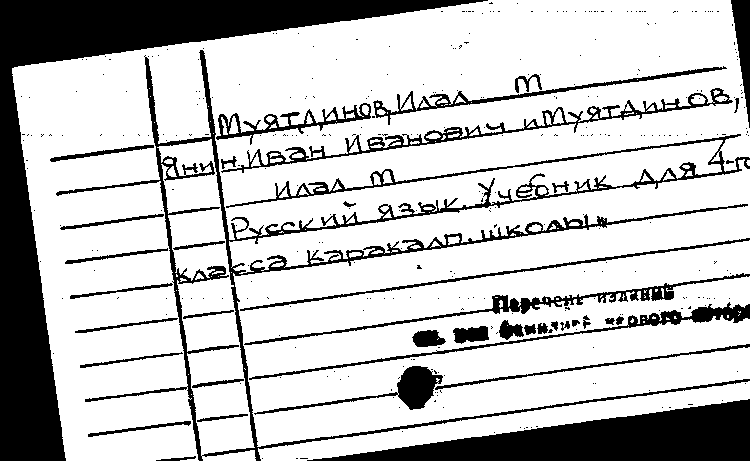 Муятдинов, Илал т
Янин, Иван Иванович и Муятдинов,
Илал т
Русский язык. Учебник для 4-го
класса каракалп. школы.
Перечень изданий
см. под фамилией первого автора